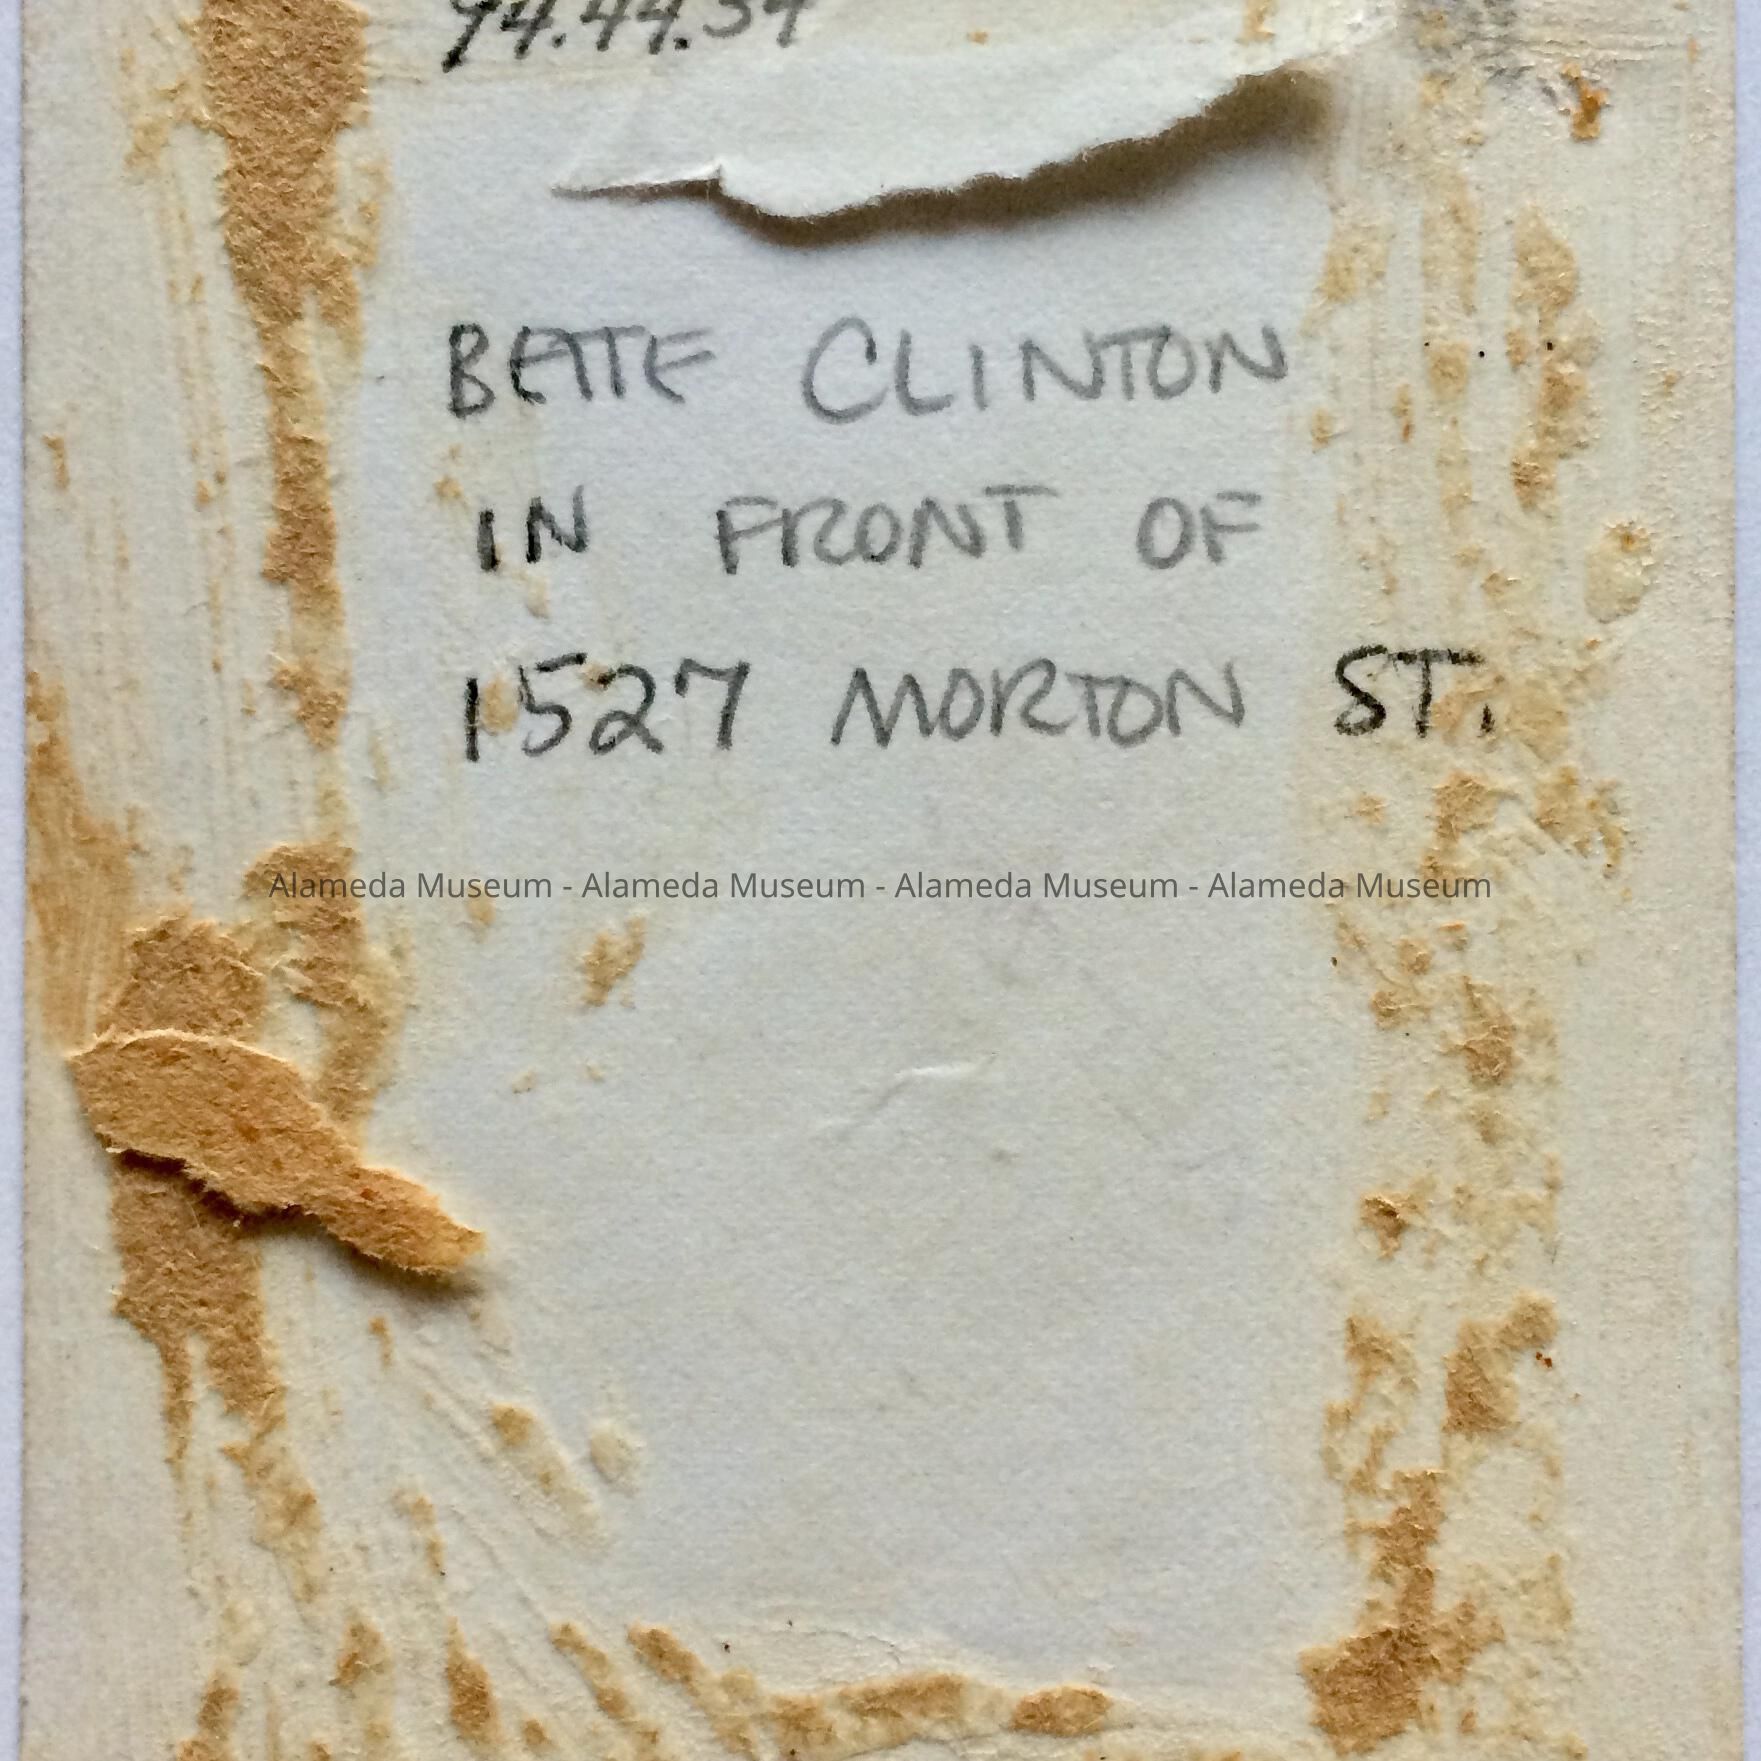 94.44.54
BETTE CLINTON
IN FRONT OF
1527 MORTON ST.
Alameda Museum - Alameda Museum - Alameda Museum - Alameda Museum